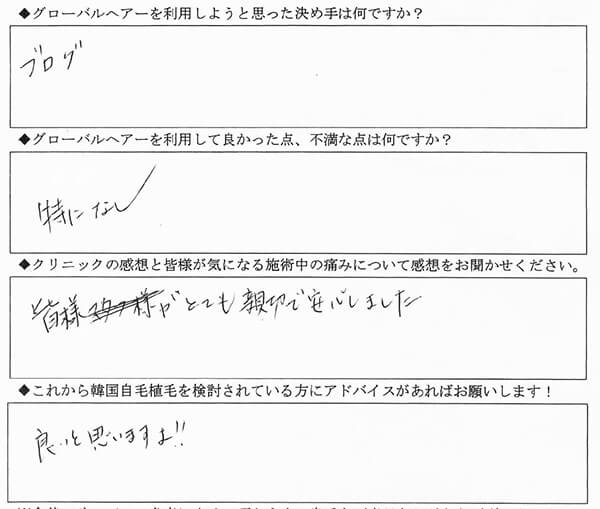 ◆グローバルヘアーを利用しようと思った決め手は何ですか？
ブログ
◆グローバルヘアーを利用して良かった点、不満な点は何ですか？
特になし
◆クリニックの感想と皆様が気になる施術中の痛みについて感想をお聞かせください。
皆様がとても親切で安心しました
◆これから韓国自毛植毛を検討されている方にアドバイスがあればお願いします！
良いと思いますよ!!